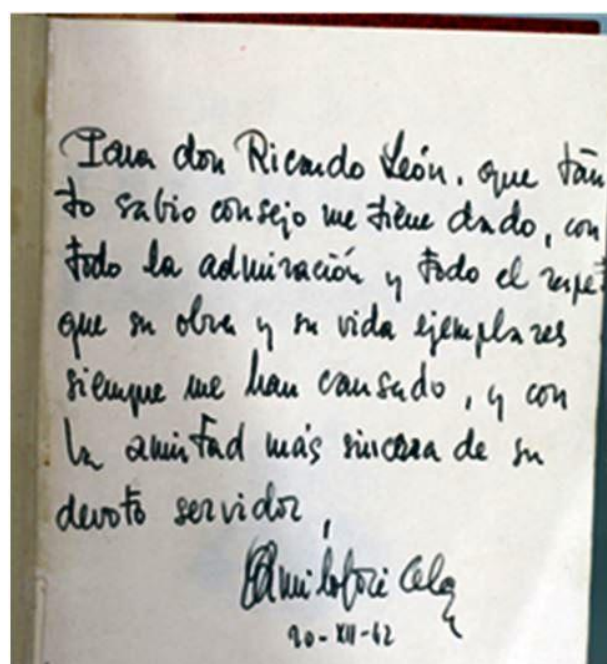 Para don Ricardo León, que tan
to sabio consejo me tiene dado, con
toda la admiración y todo el respet
que su obra y su vida ejemplares
siempre me han causado, y con
la amistad más sincera de su
devoto servidor,
Camilo José Cela
20-XII-42